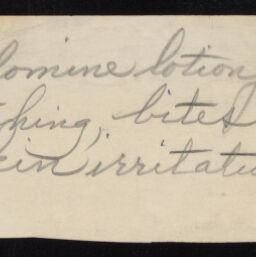 lomine lotion
ching, bites
kin irritatio